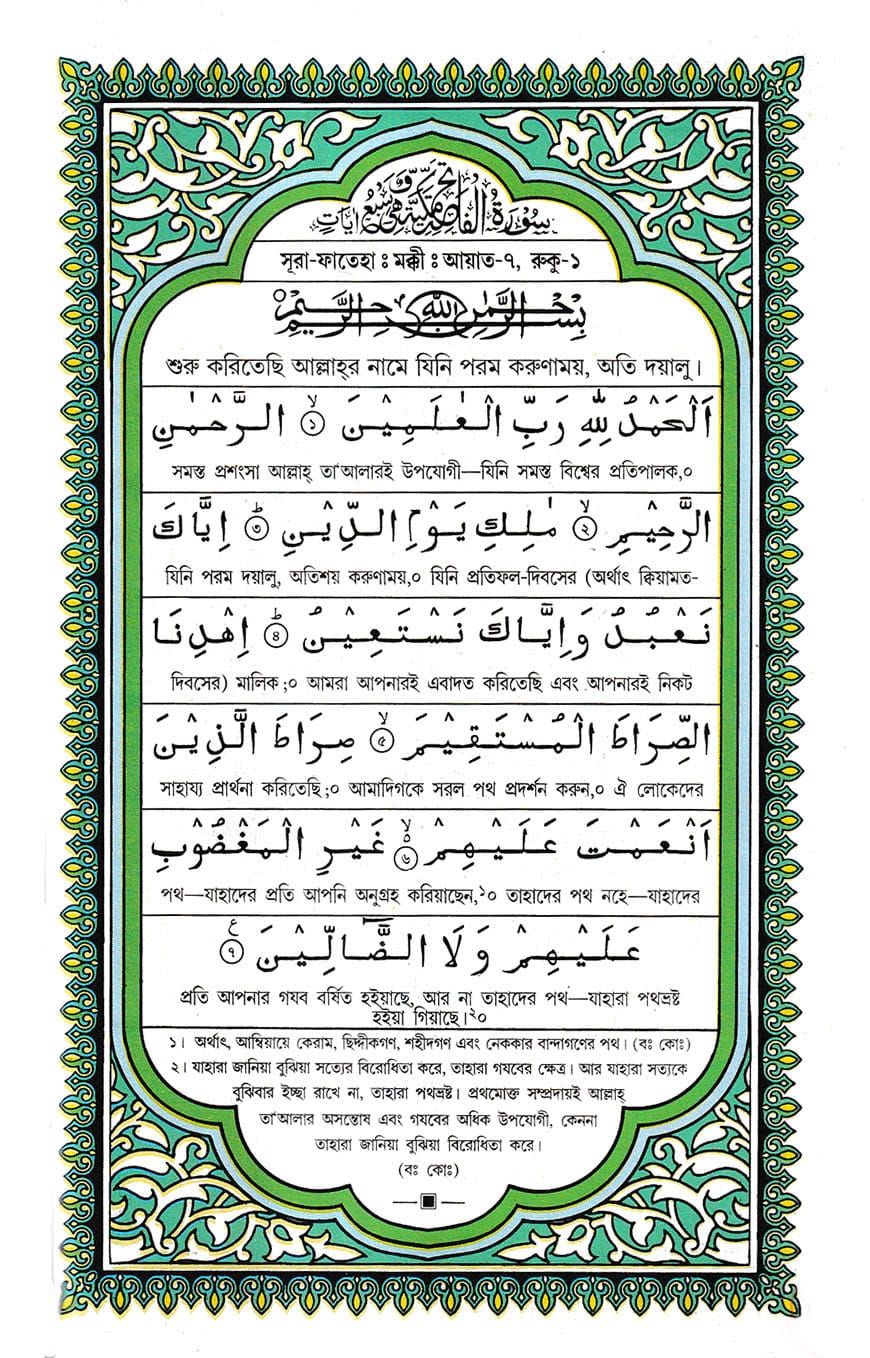 سُوْرَةُ الْفَاتِحَةِ مَكِّيَّةٌ وَّهِيَ سَبْعُ اٰيَاتٍ
সূরা-ফাতেহা ঃ মক্কী ঃ আয়াত-৭, রুকু-১
بِسْمِ اللّٰهِ الرَّحْمٰنِ الرَّحِيْمِ
শুরু করিতেছি আল্লাহ্‌র নামে যিনি পরম করুণাময়, অতি দয়ালু।
اَلْحَمْدُ لِلّٰهِ رَبِّ الْعٰلَمِيْنَ ۙ ১ الرَّحْمٰنِ
সমস্ত প্রশংসা আল্লাহ্ তা'আলারই উপযোগী—যিনি সমস্ত বিশ্বের প্রতিপালক,০
الرَّحِيْمِ ۙ ২ مٰلِكِ يَوْمِ الدِّيْنِ ؕ ৩ اِيَّاكَ
যিনি পরম দয়ালু, অতিশয় করুণাময়,০ যিনি প্রতিফল-দিবসের (অর্থাৎ ক্বিয়ামত-
نَعْبُدُ وَاِيَّاكَ نَسْتَعِيْنُ ؕ ৪ اِهْدِنَا
দিবসের) মালিক ;০ আমরা আপনারই এবাদত করিতেছি এবং আপনারই নিকট
الصِّرَاطَ الْمُسْتَقِيْمَ ۙ ৫ صِرَاطَ الَّذِيْنَ
সাহায্য প্রার্থনা করিতেছি ;০ আমাদিগকে সরল পথ প্রদর্শন করুন,০ ঐ লোকেদের
اَنْعَمْتَ عَلَيْهِمْ ۙ ৬ غَيْرِ الْمَغْضُوْبِ
পথ—যাহাদের প্রতি আপনি অনুগ্রহ করিয়াছেন,১০ তাহাদের পথ নহে—যাহাদের
عَلَيْهِمْ وَلَا الضَّآلِّيْنَ ع ৭
প্রতি আপনার গযব বর্ষিত হইয়াছে, আর না তাহাদের পথ—যাহারা পথভ্রষ্ট
হইয়া গিয়াছে।২০
১। অর্থাৎ, আম্বিয়ায়ে কেরাম, ছিদ্দীকগণ, শহীদগণ এবং নেককার বান্দাগণের পথ। (বঃ কোঃ)
২। যাহারা জানিয়া বুঝিয়া সত্যের বিরোধিতা করে, তাহারা গযবের ক্ষেত্র। আর যাহারা সত্যকে
বুঝিবার ইচ্ছা রাখে না, তাহারা পথভ্রষ্ট। প্রথমোক্ত সম্প্রদায়ই আল্লাহ্
তা'আলার অসন্তোষ এবং গযবের অধিক উপযোগী, কেননা
তাহারা জানিয়া বুঝিয়া বিরোধিতা করে।
(বঃ কোঃ)